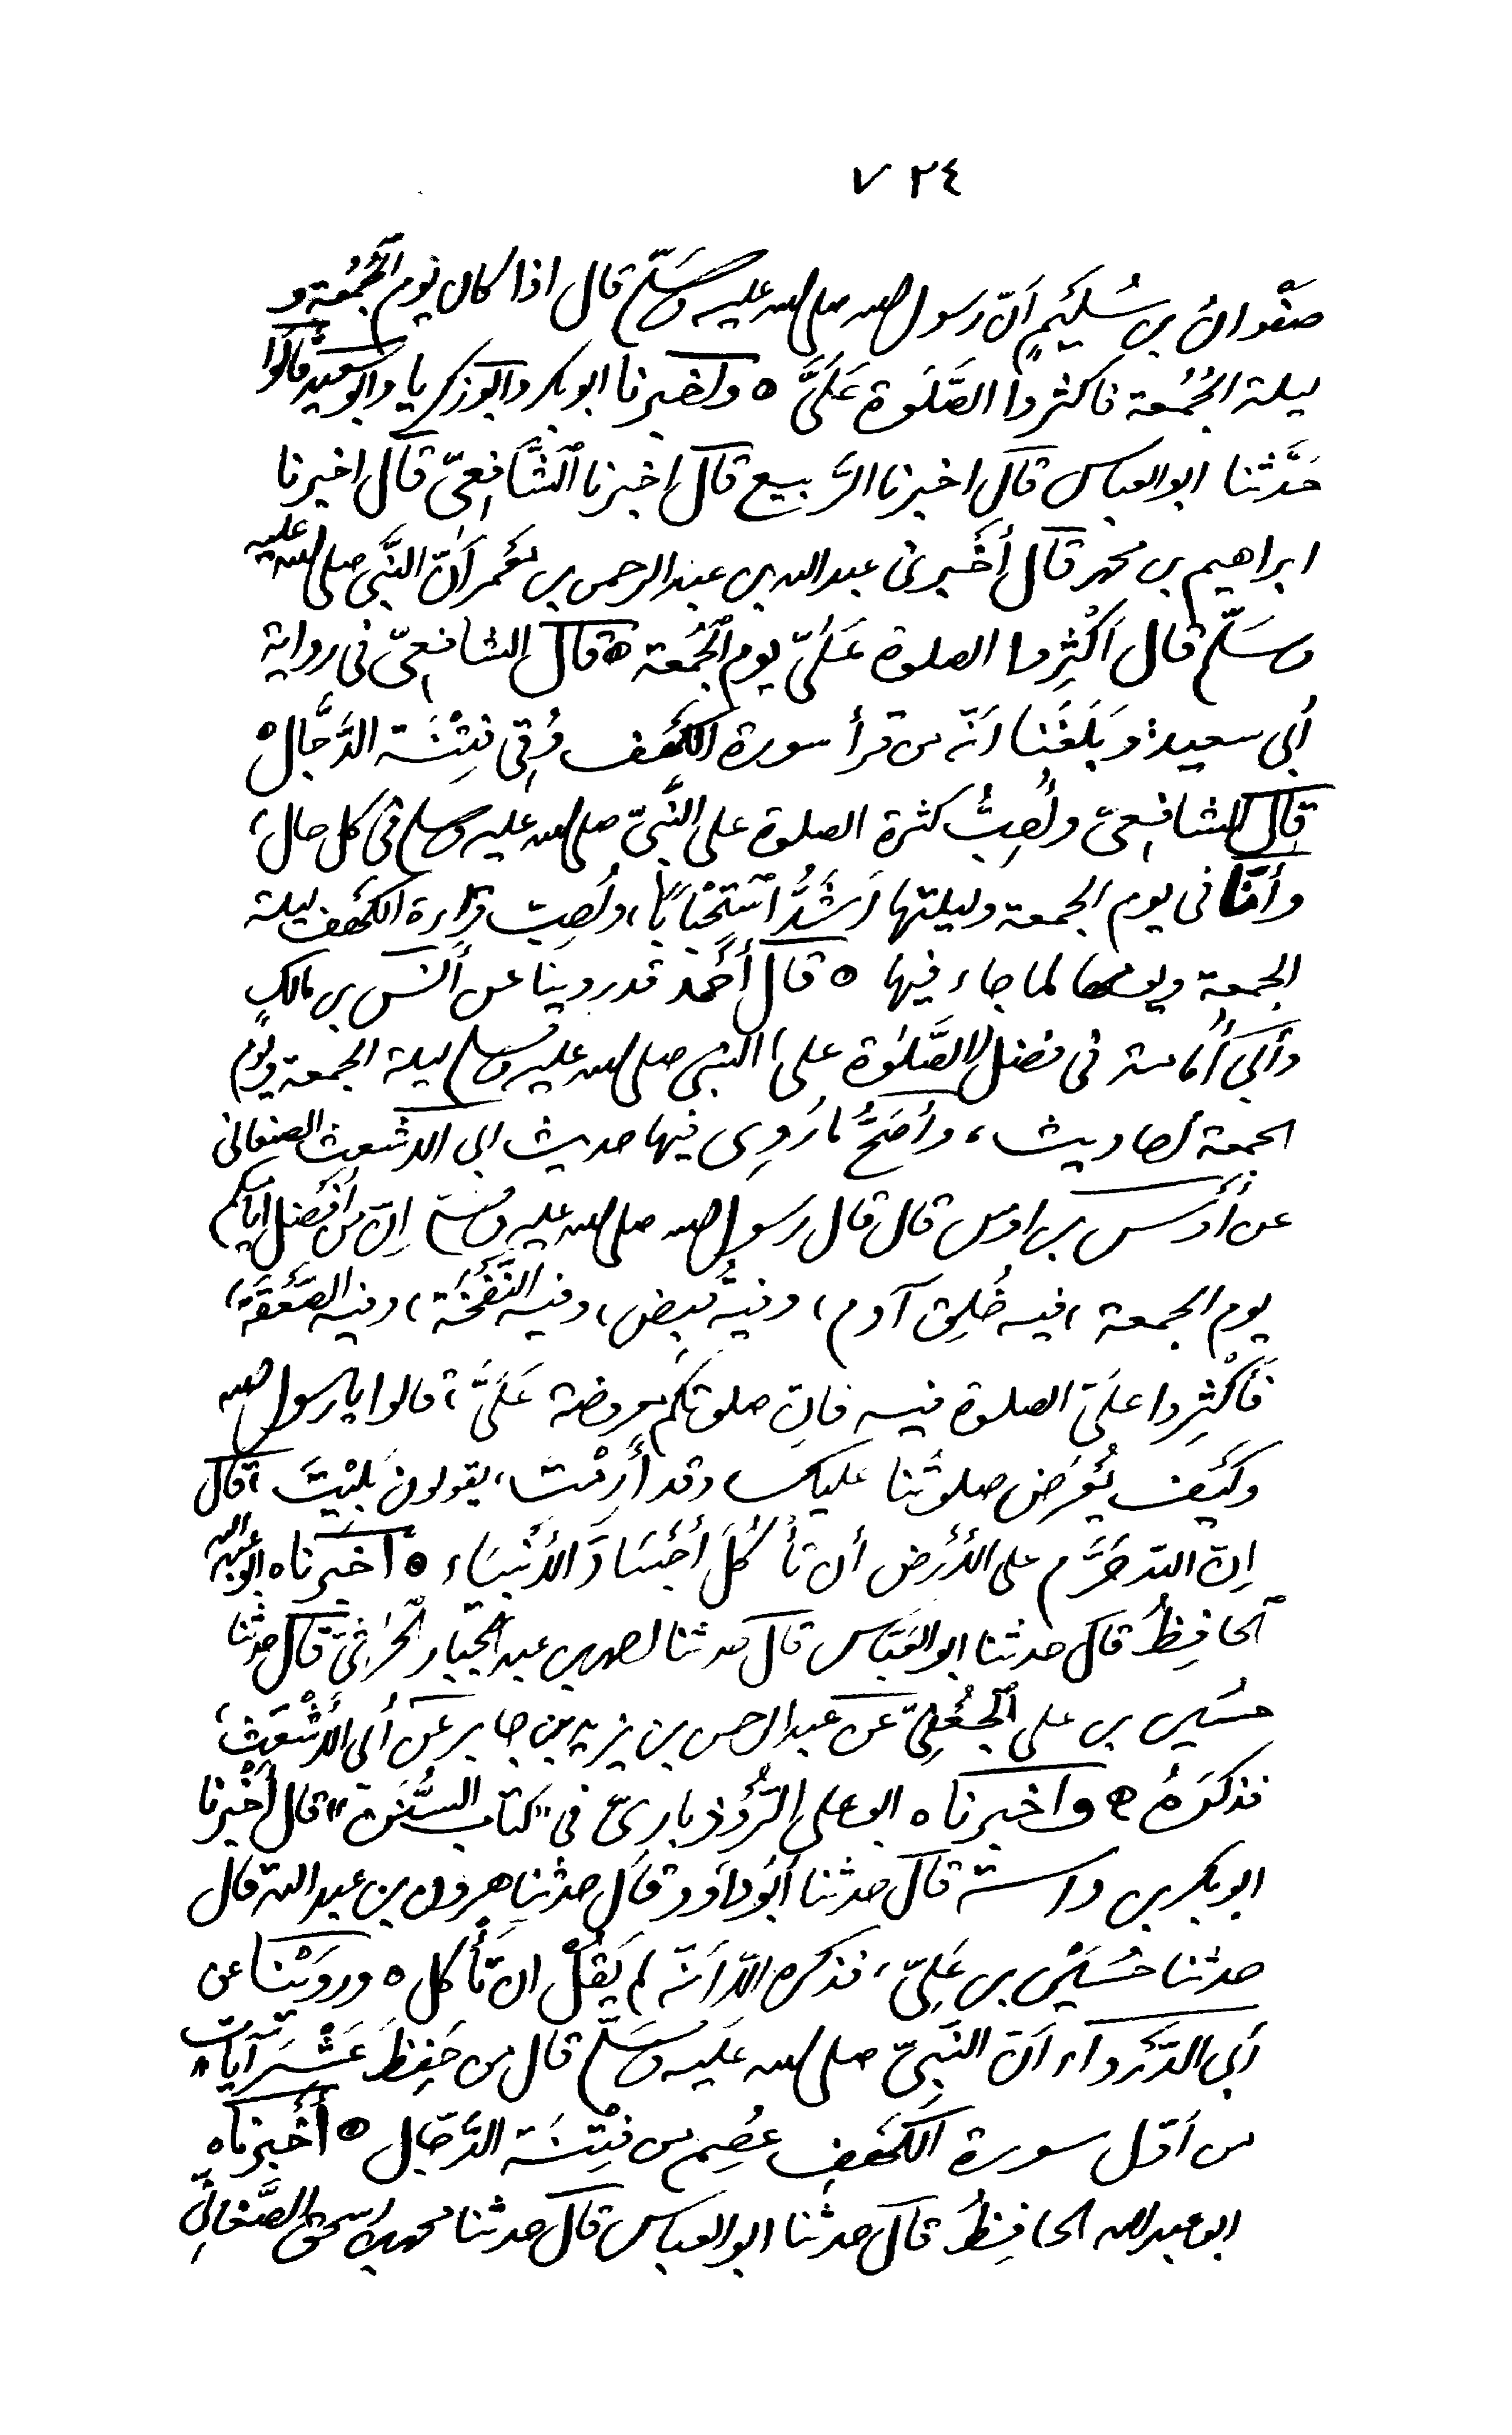 ٧٢٤
صَفْوانُ بن سُلَيمٍ أنّ رسول الله صلى الله عليه وسَلّم قال اذا كان يوم الجُمُعة و
ليلة الجُمُعة فاكثروا الصَّلَوة عَلَيَّ ه واخبرنا ابو بكر وابو زكريا وابو سعيد قالوا
حَدَّثنا ابو العباس قال اخبرنا الرَّبيع قال اخبرنا الشَّافِعيّ قال اخبرنا
ابراهيم بن محمد قال أَخْبرنى عبد الله بن عبد الرحمن بن مَعْمَر أنّ النَّبى صلى الله عليه
وسَلّم قال أكْثِروا الصلوة عَلَيّ يوم الجُمُعة ه قال الشافِعىّ فى رواية
أبى سعيد: وبَلَغَنا أنّه من قرأ سورة الكَهْف وُقِىَ فِتْنَة الدَّجَّال ه
قال الشافِعىّ وأُحِبُّ كثرة الصلوة على النَّبىّ صلى الله عليه وسلم فى كل حال،
وأنَا فى يوم الجمعة وليلتها أشَدُّ اسْتِحْبَابًا، وأُحِبّ قراءة الكَهْف ليلة
الجمعة ويومها لما جاء فيها ه قال أَحْمد قد روينا عن أنَس بن مالكٍ
وأبى أُمامة فى فضل الصَّلوٰة على النبى صلى الله عليه وسلم ليلة الجمعة ويوم
الجمعة أحاديث، وأَصَحُّ ما رُوِى فيها حديث ابى الاشعث الصنعانى
عن أَوْس بن اوس قال قال رسول الله صلى الله عليه وسلم إنّ من أفْضل ايّامكم
يوم الجمعة، فيه خُلِق آدم، وفيه قُبِض، وفيه النَّفْخَة، وفيه الصَّعْقَة،
فَأَكْثِروا علَيّ الصلوة فيه فإنّ صلوتكم معروضة عَلَيَّ، قالوا يا رسول الله
وكَيْف يُعْرَض صلوتُنا عليك وقد أَرِمْتَ، يقولون بَلِيْتَ، قال
إنّ الله حَرَّم على الأَرْض أن تأكُلَ أَجْسَادَ الأَنْبِيَاء ه أخبرناه ابو عبد الله
الحافِظُ قال حدثنا ابو العَبّاس قال حدثنا احمد بن عبد الجبّار الحَارِثىّ قال حدثنا
حسُين بن على الجُعْفِىّ عن عبد الرحمن بن يزيد بن جابر عن أبى الأَشْعَث،
فذكَرَهُ ه واخبرناه ابو على الرُّوذبارىّ فى "كتاب السُّنَن" قال أَخْبرنا
ابو بكر بن داسة قال حدثنا أبُو دَاوود قال حدثنا هرون بن عبد الله قال
حدثنا حُسَيْن بن عَلِىّ، فذكره الّا أنّه لم يَقُلْ ان تَأْكل ه ورَوَيْنا عن
أبى الدَّرْدآء أنّ النَّبِىّ صلى الله عَليه وسَلَّم قال من حَفِظَ عَشْرَ آيات
من أوّل سورة الكَهْفِ عُصِم من فِتْنَة الدَّجّال ه أَخْبرناه
ابو عبد الله الحافِظُ قال حدثنا ابو العباس قال حدثنا محمد بن اسحق الصَّغانِىّ